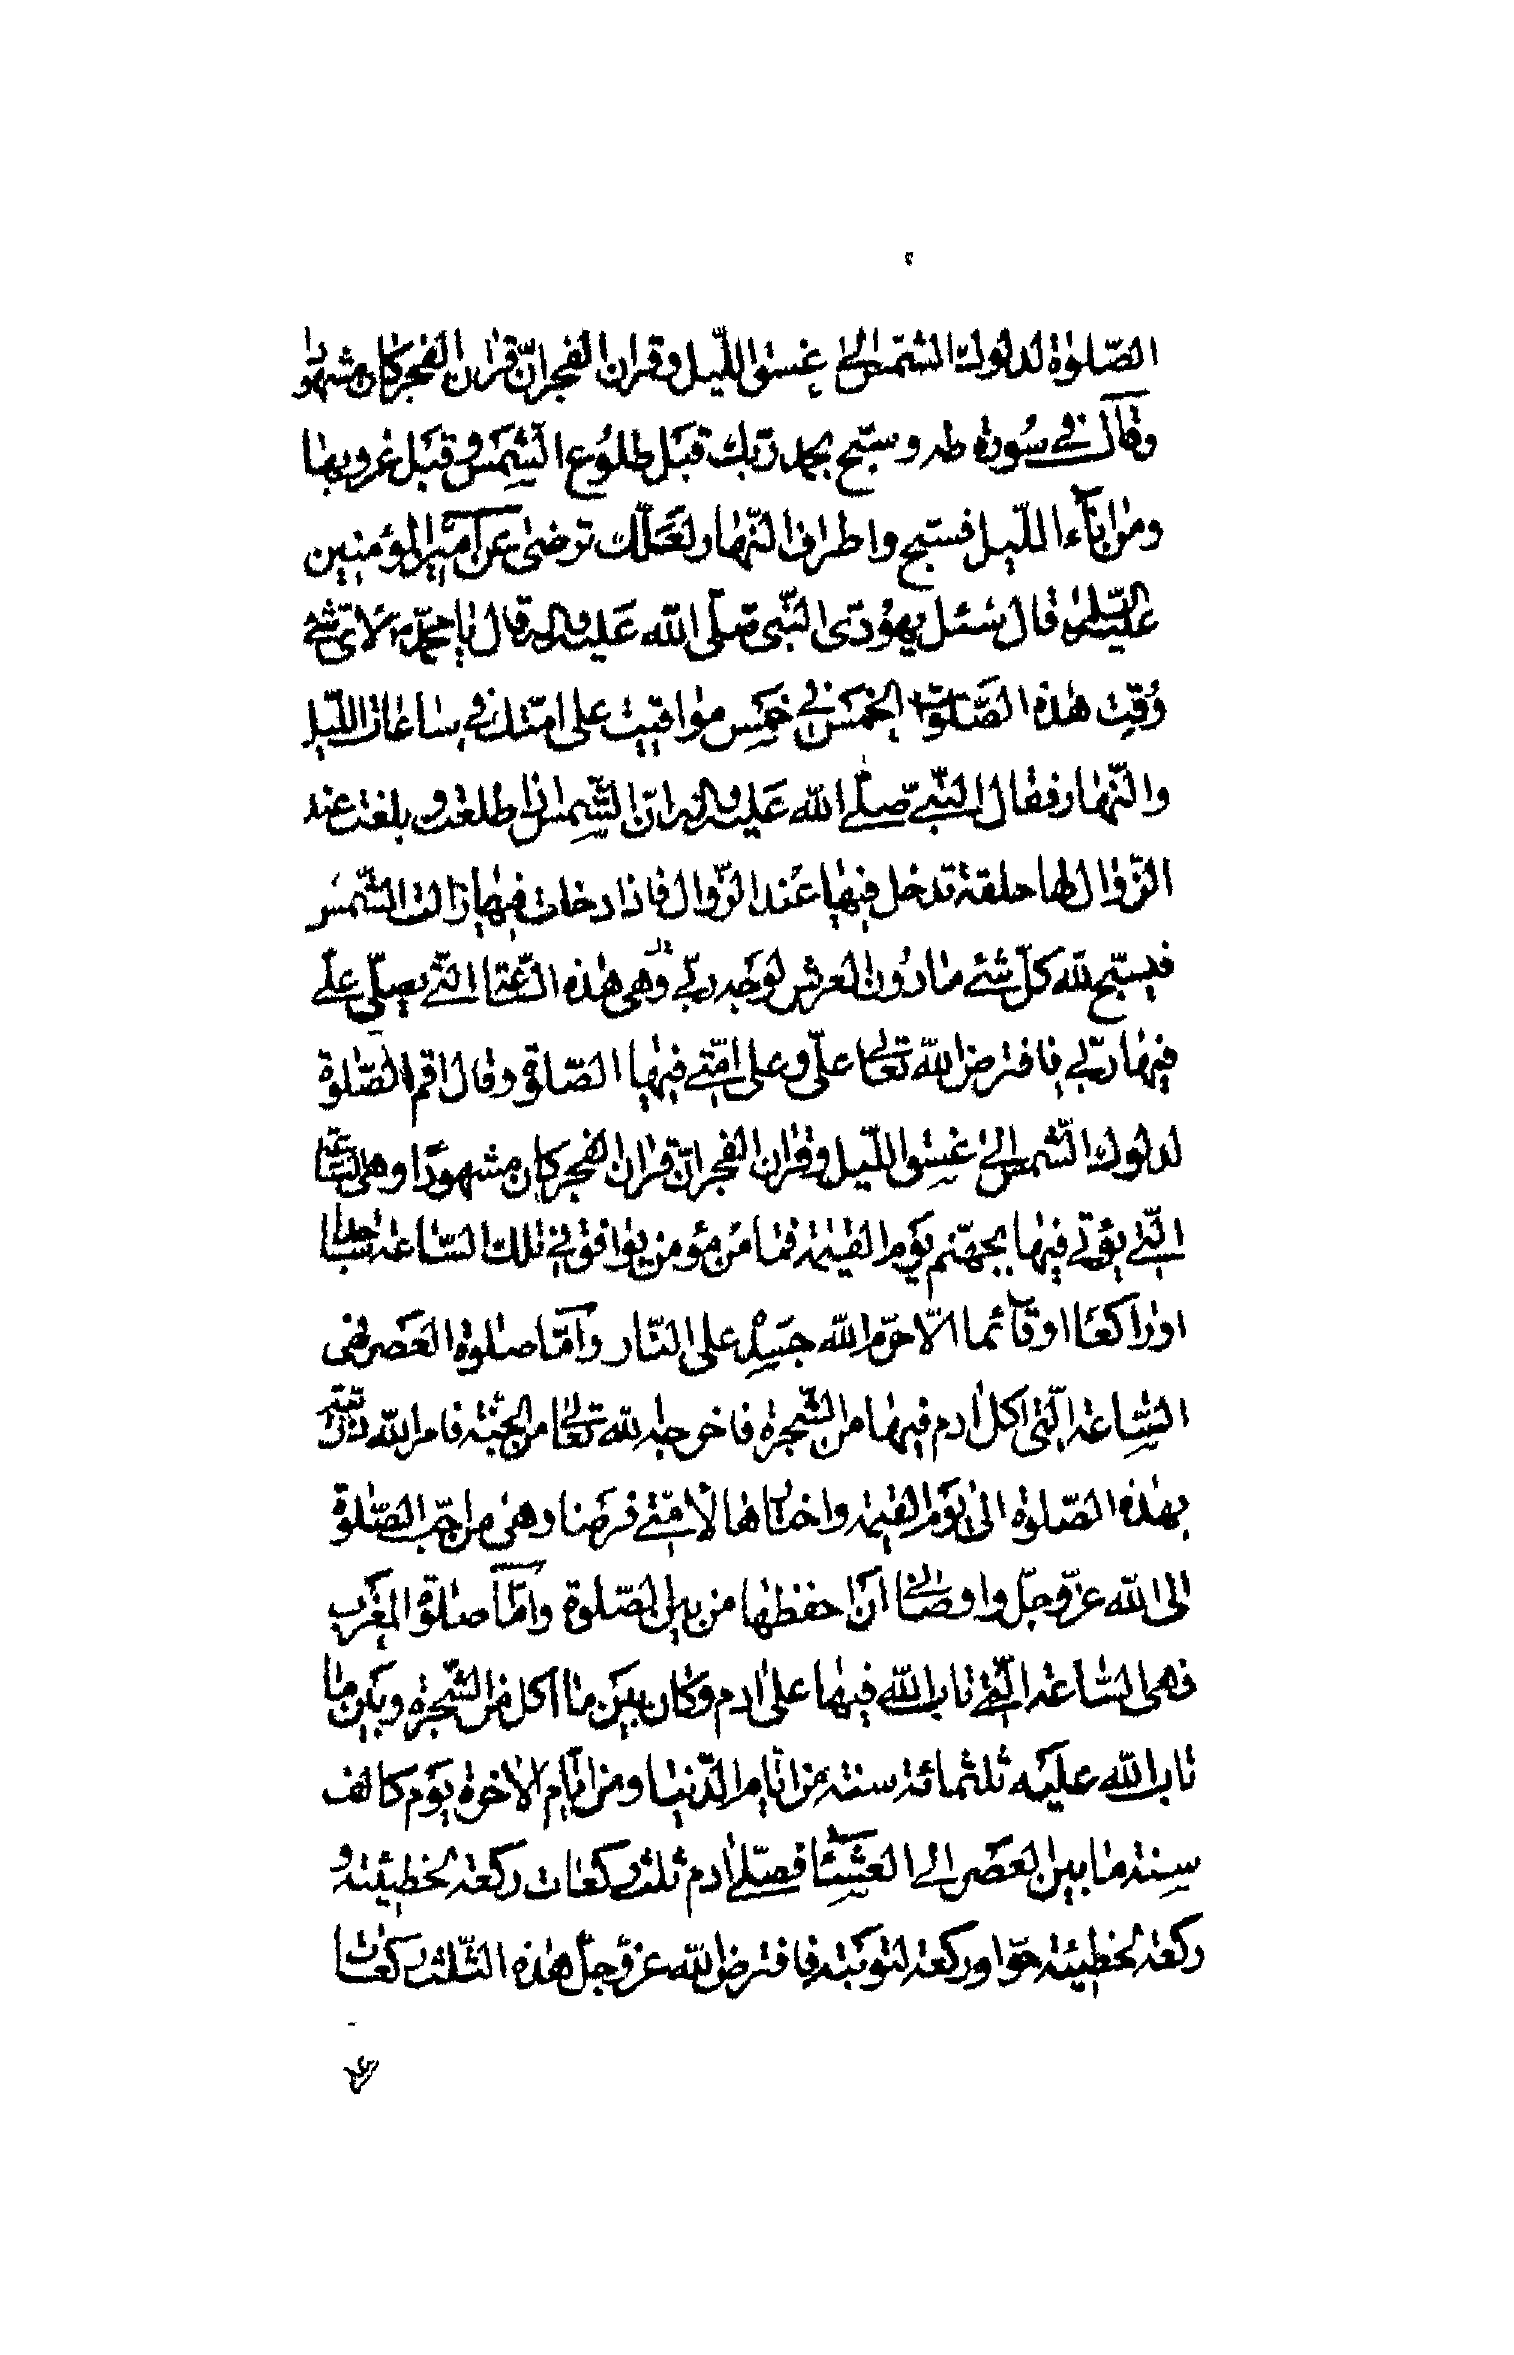 الصّلوٰة لدلوك الشّمس الىٰ غسق اللّيل وقران الفجر انّ قرٰان الفجر كان مشهودا
وقآل فى سُورة طه وسبّح بحمد ربّك قبَل طلوُع الشّمَس وقبَل غروبها
ومن اناۤء اللّيل فسبّح واطراف النّهار لعَلّك ترضىٰ عَن اَميرالمؤمنين
عليه السّلم قال سَئل يهوُدى النّبى صلّى الله عَليه واله قال يا محمّد لاىّ شئ
وُقّت هذه الصَّلوات الخمَس فى خمَس مواقيت على امّتك فى ساعات اللّيل
والنّهار فقال النّبىّ صلّى الله عَليه واله انّ الشّمس اذا طلعت وبلغت عند
الزّوال لها حلقة تدخل فيها عند الزّوال فاذا دخلت فيها زالت الشّمسُ
فيسبّح لله كلّ شئ مادُون العرش لوجَه ربّى وهى هذه السّاعة الّتى يصلّى علىّ
فيها ربّى فافترض الله تعالى علىّ وعلى امّتى فيها الصّلوة وقال اقم الصّلوة
لدلوك الشّمس الىٰ غسق اللّيل وقرٰان الفجر انّ قرٰان الفجر كان مشهودًا وهى السّاعة
الّتى يؤتى فيها بجهنّم يوَم القيٰمة فمٰا مَن مؤمن يوافق فى تلك السّاعة ساجدا
اوراكعًا اوقآئما الّا حرّم الله جسَدهُ على النّار وآمّا صلوٰة العَصر فهى
السّاعة الّتى اكل اٰدم فيها من الشّجرة فاخرجه الله تعالى من الجنّة فامر الله ذرّيّته
بهذه الصّلوٰة الىٰ يوَم القيٰمة واختارها لامّتى فرضَا وهى من احبّ الصّلوة
الى الله عزّوجلّ واوصَانى انَ احفظها من بين الصّلوة وآمّا صلوة المغَرب
فهى السّاعة الّتى تاب الله فيها على اٰدم وكان بيَن ما اكل من الشّجرة وبيَن ما
تاب الله عليَه ثلثمائة سنة من ايّام الدّنيا ومن ايّام الاٰخرة يوَم كالف
سنة مٰا بين العصَر الى العشآء فصلّى اٰدم ثلث ركعات ركعة لخطيئته و
ركعة لخطيئة حوّا وركعة لتوبَته فافترض الله عزّوجلّ هذه الثّلث ركعات